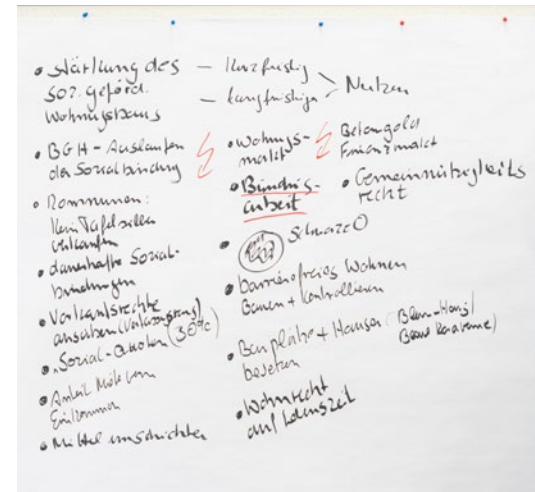 • Stärkung des — kurzfristig
soz. geförd. — langfristiger > Nutzen
Wohnungsbaus
• BGH - Auslaufen
der Sozialbindung
• Kommunen:
kein Tafelsilber
verkaufen
• dauerhafte Sozial-
bindungen
• Vorkaufsrechte
ausüben
• „Sozial-Quoten (30%)
• Anteil Miete vom
Einkommen
• Mittel umschichten
• Wohnungs-
markt
Betongold
Finanzmarkt
• Bündnis-
arbeit
• Gemeinnützigkeits
recht
• Schwarze 0
• barrierefreies Wohnen
Bauen + kontrollieren
• Bauplätze + Häuser
besetzen
• Wohnrecht
auf Lebenszeit